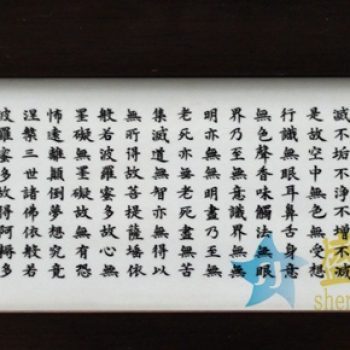 滅不垢不淨不增不减
是故空中無色無受想
行識無眼耳鼻舌身意
無色聲香味觸法無眼
界乃至無意識界無無
明亦無無明盡乃至無
老死亦無老死盡無苦
集滅道無智亦無得以
無所得故菩提薩埵依
般若波羅蜜多故心無
罣礙無罣礙故無有恐
怖遠離顛倒夢想究竟
涅槃三世諸佛依般若
波羅蜜多故得阿耨多